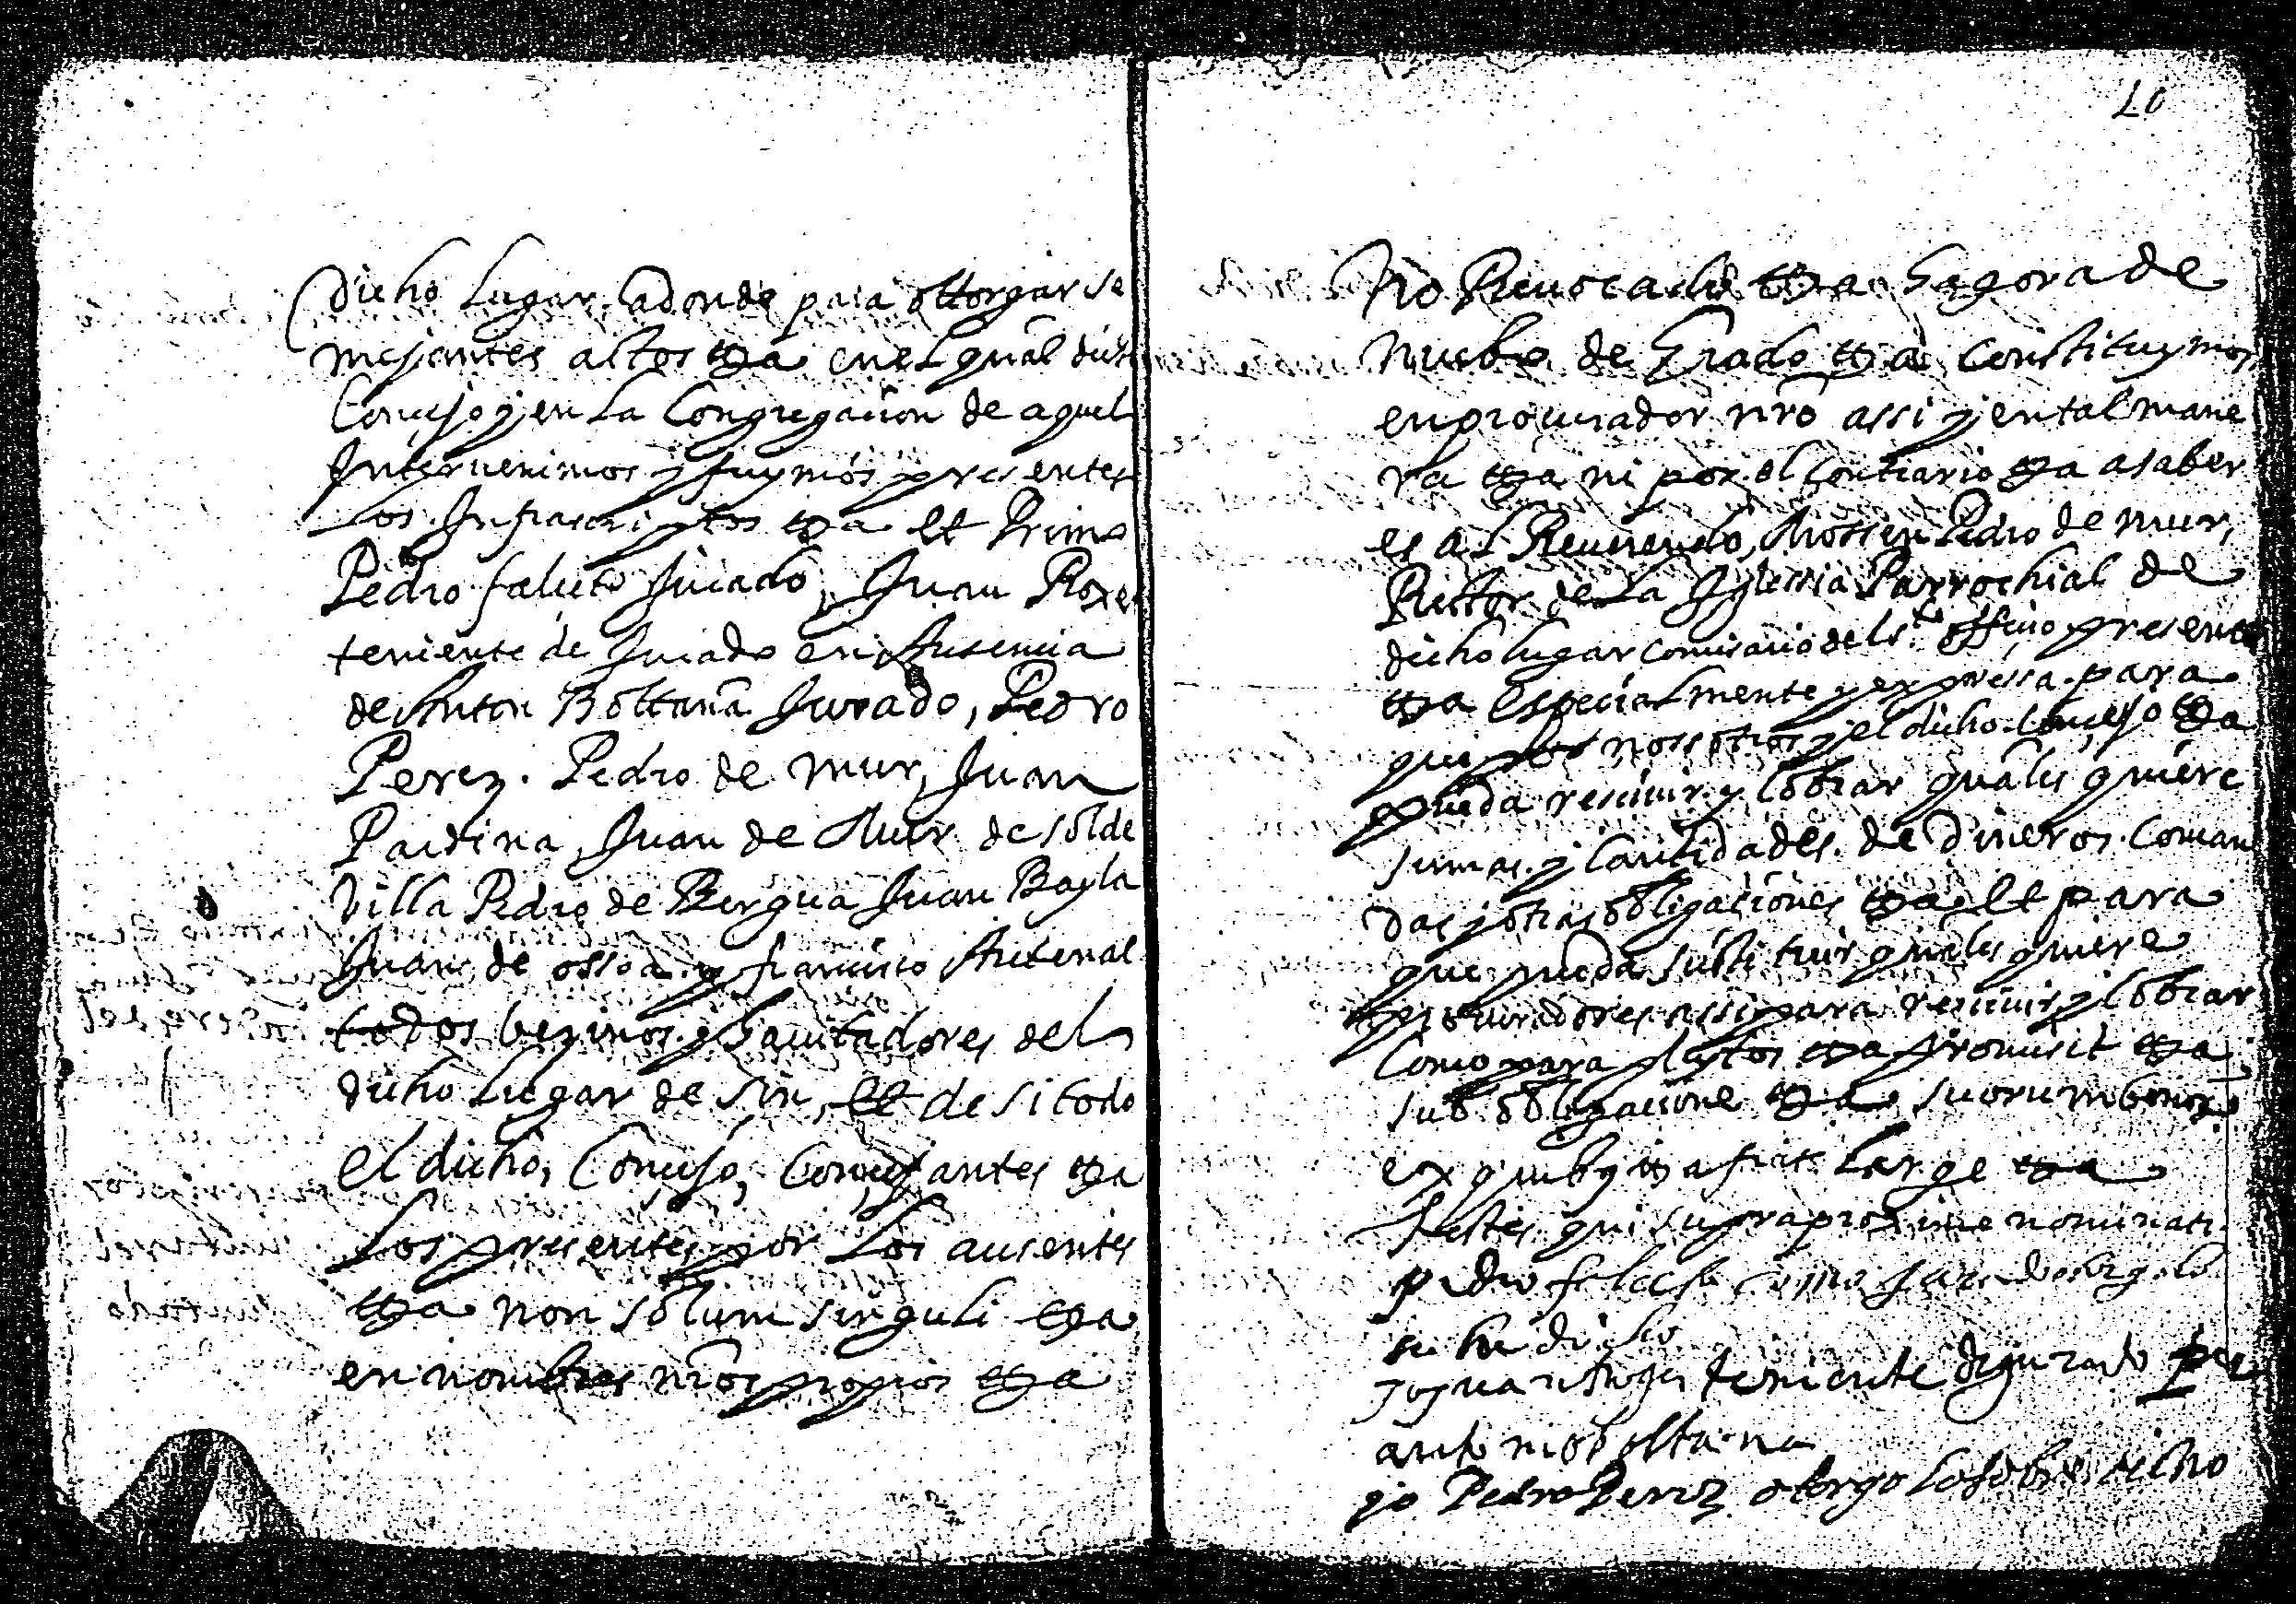 dicho Lugar, adonde para ottorgar se
mejantes actos etta en el qual dicho
Concejo y en la Congregacion de aquel
Interuenimos y fuymos presentes
Los Infrascriptos etta et Primo
Pedro falceto Jurado, Juan
teniente de Jurado en Ausencia
de Anton Boltaña Jurado, Pedro
Perez. Pedro de Mur, Juan
Pardina, Juan de Mur de solde
Villa Pedro de Bergua Juan Bayla
Juan de ossa y francisco
todos vezinos y hauitadores del
dicho Lugar de Sin, et de si todo
el dicho, Concejo, Concejantes etta
Los presentes por Los ausentes
etta non solum singuli etta
en nombres nros propios etta
10
no Reuocando etta hagora de
nuebo de Grado etta constituymos
en procurador nro assi y en tal mane
ra etta ni por el contrario etta a saber
es al Reuerendo, Mossen Pedro de Mur,
Rector de La Iglessia Parrochial de
dicho lugar comisario del sto officio presente
etta especialmente y expressa para
que por nossotros y el dicho concejo etta
pueda resciuir y cobrar quales quiere
sumas y cantidades de dineros coman
das y otras obligaciones etta et para
que pueda substituir quales quiere
procuradores assi para resciuir y cobrar
como para pleytos etta promisit etta
sub obligacione etta suorum bonor
ex quibus etta fiat large etta
Testes qui supra proxime nominati
pedro falceto como jurado otorgo lo
so bre dicho
yo juan teniente de jurado por
antonio boltana
yo Pedro Perez otorgo lo sobre dicho